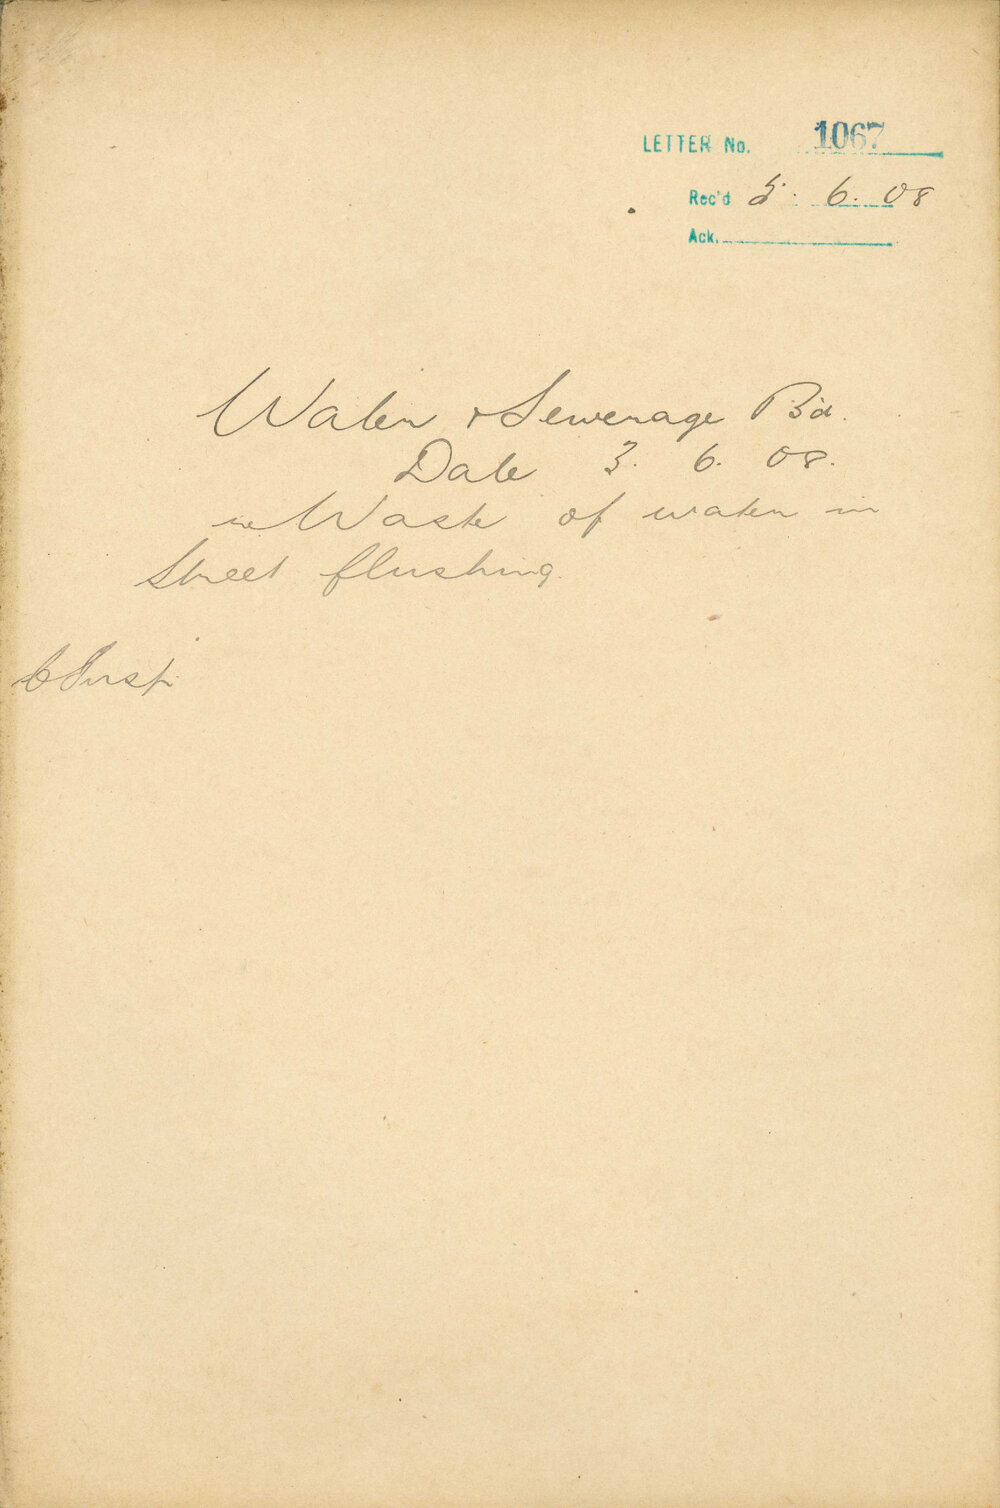 LETTER No. 1067
Rec'd 5. 6. 08
Ack.
Water & Sewerage Bd.
Date 3. 6. 08.
re Waste of water in
Street flushing.
C Insp.